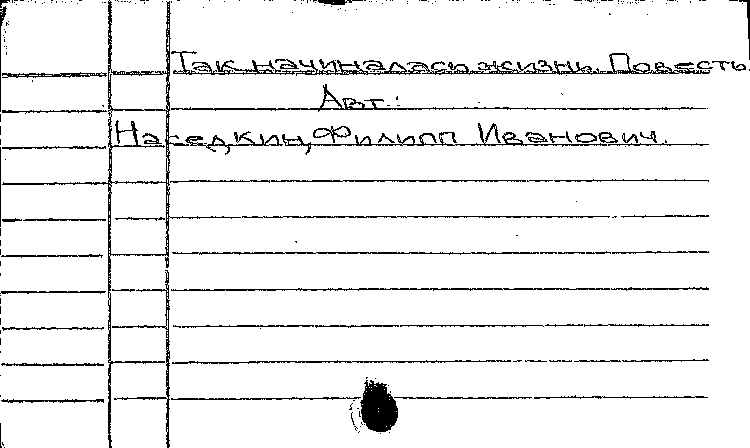 Так начиналась жизнь. Повесть.
Авт.:
Наседкин, Филипп Иванович.